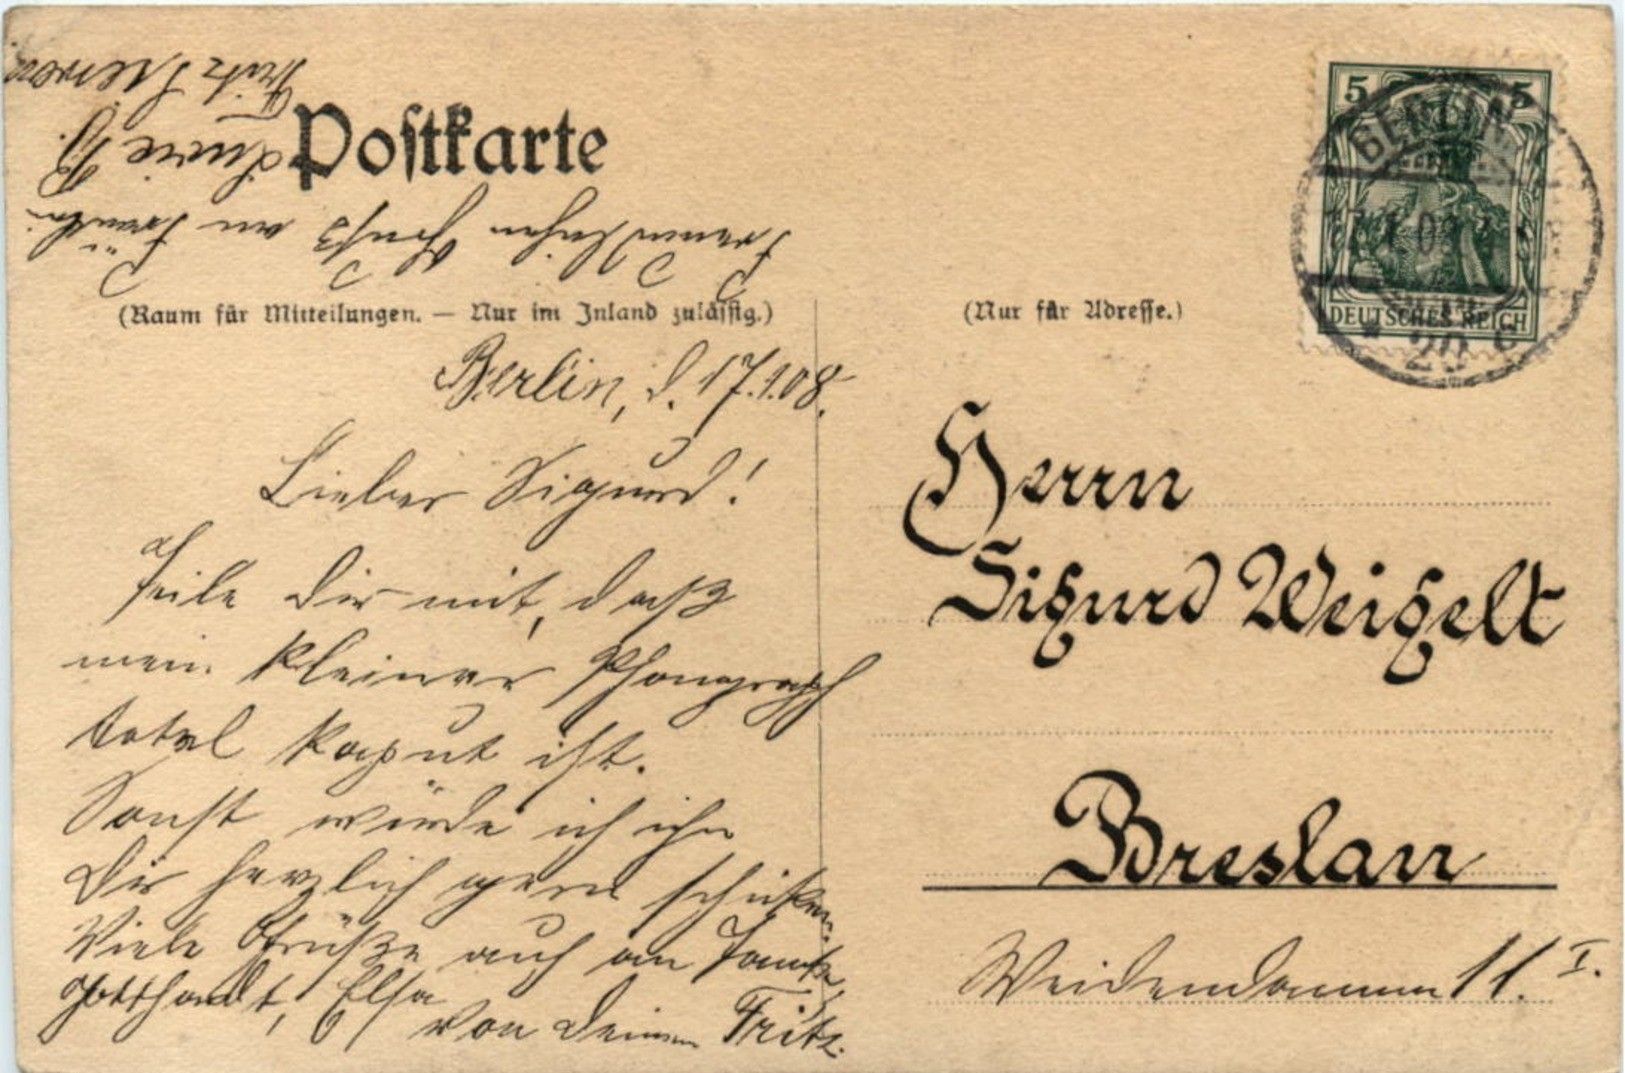 Postkarte
(Raum für Mitteilungen. — Nur im Inland zulässig.)
Berlin, d. 17.1.08.
Lieber Sigurd!
Teile Dir mit, daß
mein kleiner Phonograph
total kaput ist.
Sonst würde ich ihn
Dir herzlich gern schicken.
Viele Grüße auch an Tante,
Gotthardt, Elsa
von Deinem Fritz.
Freundlichen Gruß an Fräulein
Lucie
Fritz
(Nur für Adresse.)
5 5
DEUTSCHES REICH
BERLIN
Herrn
Sigurd Weigelt
Breslau
Weidendamm 11. I.